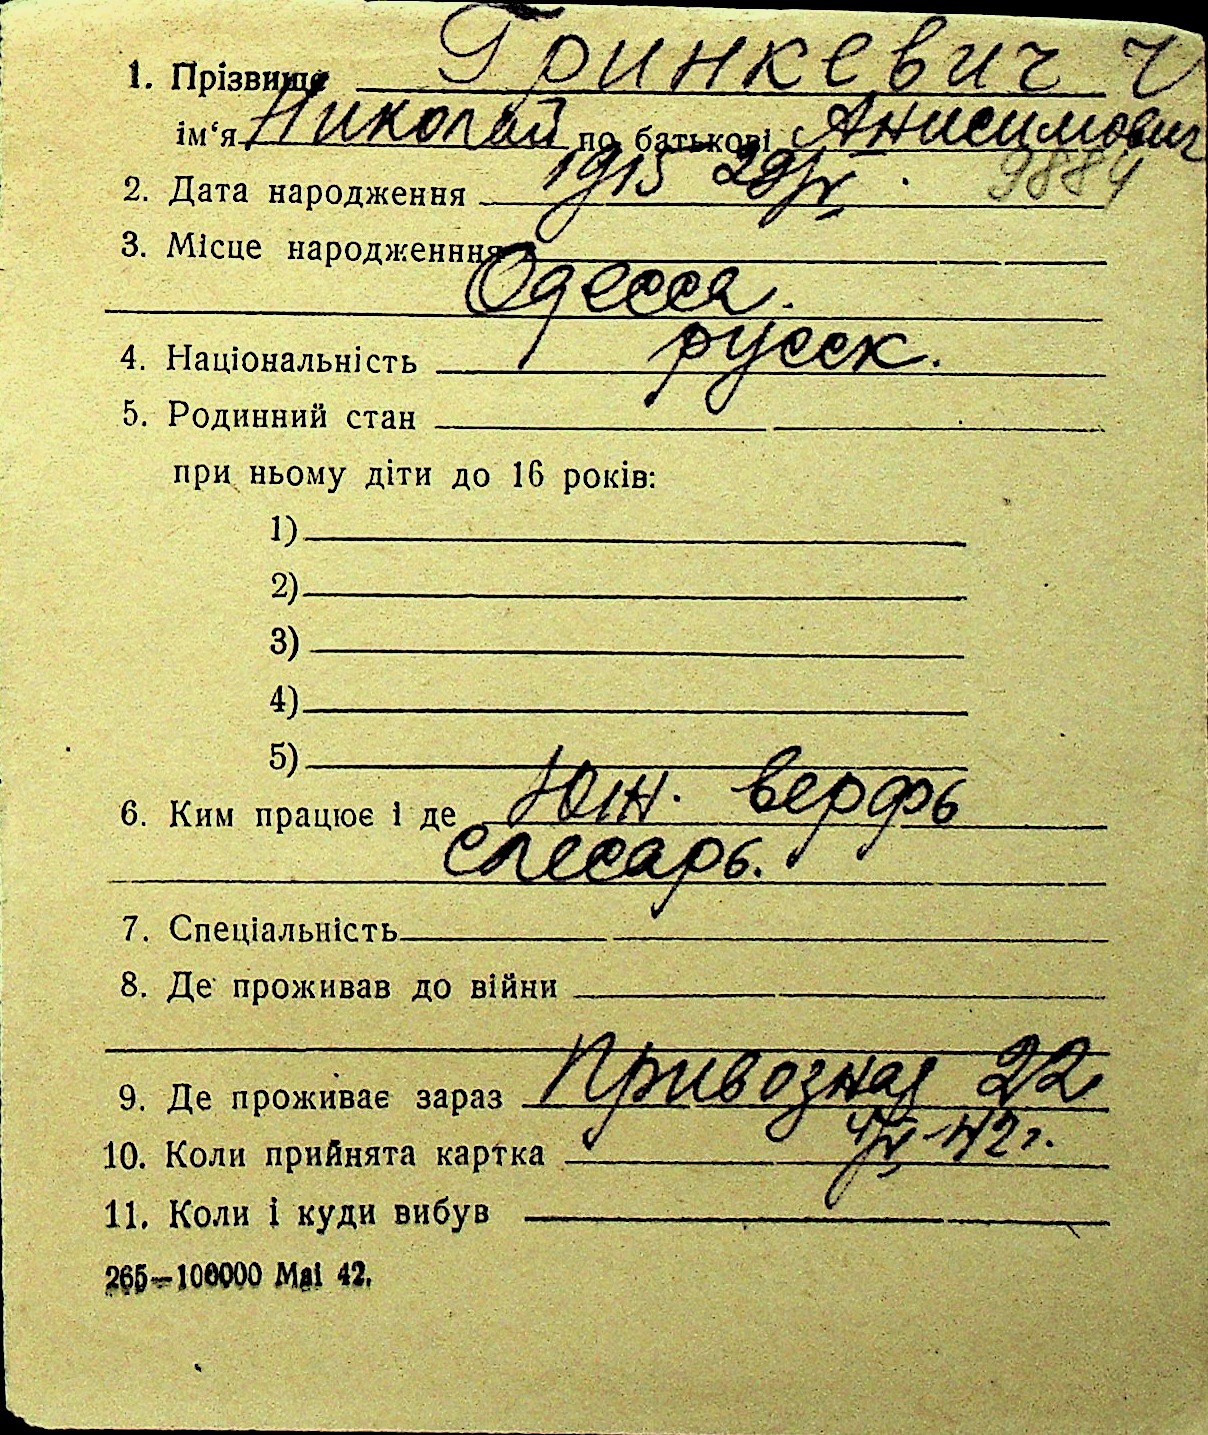 1. Прізвище Гринкевич Ч
ім‘я Николай по батькові Анисимович
2. Дата народження 1915 29/IV. 9884
3. Місце народженння
Одесса.
4. Національність русск.
5. Родинний стан
при ньому діти до 16 років:
1)
2)
3)
4)
5)
6. Ким працює і де Юж. верфь
слесарь.
7. Спеціальність
8. Де проживав до війни
9. Де проживає зараз Привозная 22
10. Коли прийнята картка 42г.
11. Коли і куди вибув
265—100000 Mai 42.